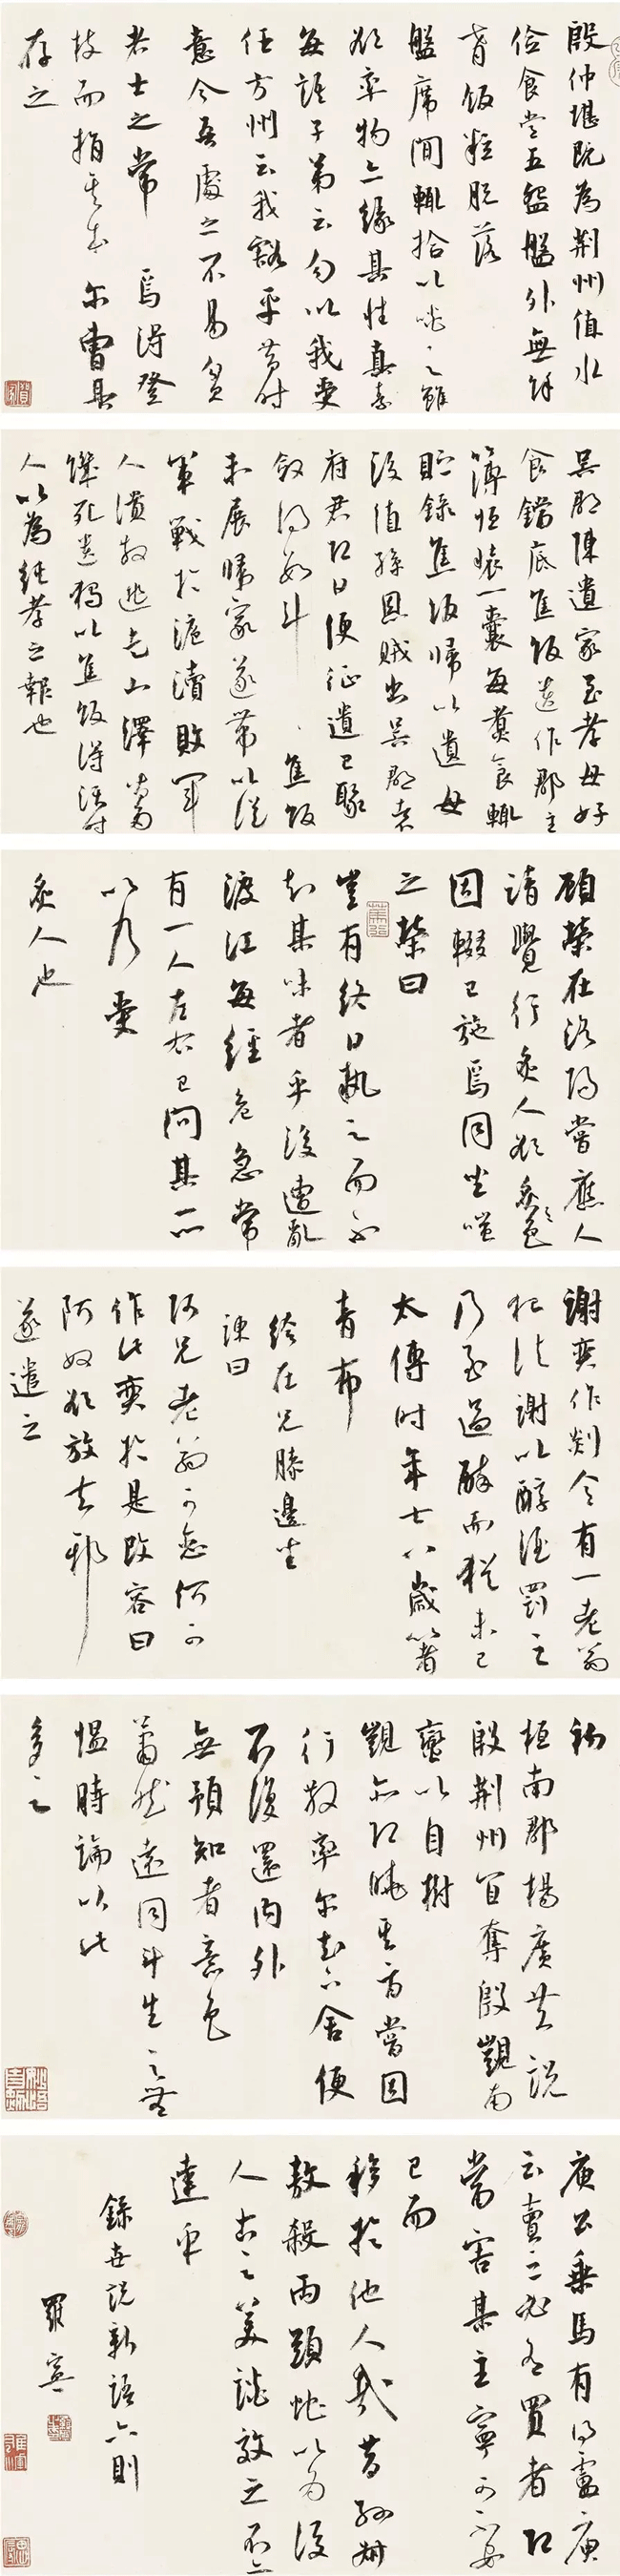 殷仲堪既為荆州值水
儉食常五盌盤外無餘
肴飯粒脱落
盤席間輒拾以噉之雖
欲率物亦緣其性真素
每語子弟云勿以我受
任方州云我豁平昔時
意今吾處之不易貧
者士之常 焉得登
枝而捐其本 尔曹其
存之
吳郡陳遺家至孝母好
食鐺底焦飯遺作郡主
簿恒裝一囊每煮食輒
貯錄焦飯歸以遺母
後值孫恩賊出吳郡袁
府君即日便征遺已聚
斂得數斗 焦飯
未展歸家遂帶以從
軍戰於滬瀆敗軍
人潰散逃走山澤皆多
饑死遺獨以焦飯得活時
人以為純孝之報也
顧榮在洛陽嘗應人
請覺行炙人欲炙之色
因輟己施焉同坐嗤
之榮曰
豈有終日執之而不
知其味者乎後遭亂
渡江每經危急常
有一人左右已問其所
以乃受
炙人也
謝奕作剡令有一老翁
犯法謝以醇酒罰之
乃至過醉而猶未已
太傅時年七八歲著
青布
絝在兄膝邊坐
諫曰
阿兄老翁可念何可
作此奕於是改容曰
阿奴欲放去邪
遂遣之
初
桓南郡楊廣共說
殷荆州宜奪殷覬南
蠻以自樹
覬亦即曉其旨嘗因
行散率尔去下舍便
不復還内外
無預知者意色
蕭然遠同鬥生之無
愠時論以此
多之
庾公乘馬有的盧庾
云賣之必有買者即
當害其主寧可不安
己而
移於他人哉昔孫叔
敖殺兩頭蛇以為後
人古之美談效之不亦
達乎
錄世說新語六則
羅寧